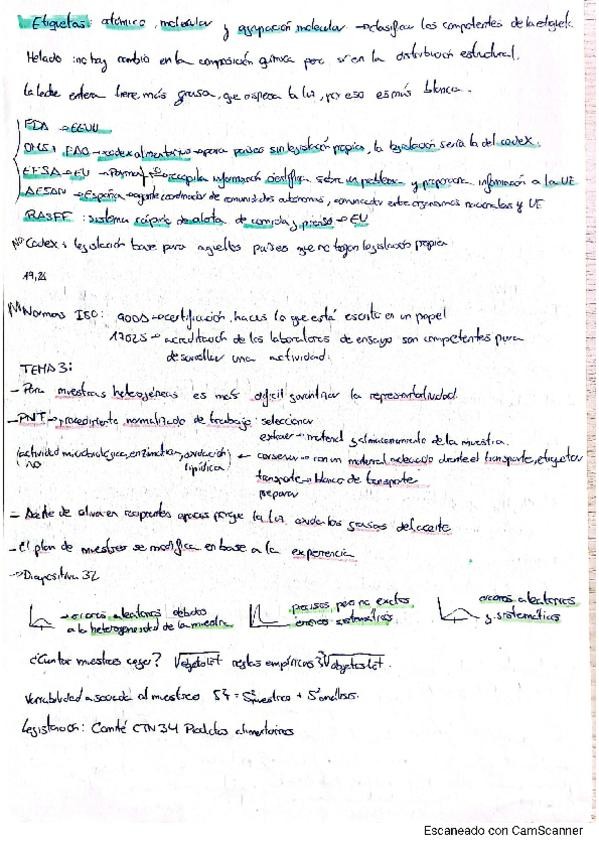 Etiquetas: atómico, molecular y agrupación molecular → clasificar los componentes de la etiqueta.
Helado: no hay cambio en la composición química pero sí en la distribución estructural.
La leche entera tiene más grasa, que dispersa la luz, por eso es más blanca.
FDA → EEUU
OMS, FAO → codex alimentarius → para países sin legislación propia, la legislación sería la del codex.
EFSA → EU → Parma → recopila información científica sobre un problema y proporciona información a la UE
AESAN → España → agente coordinador de comunidades autónomas, comunicador entre organismos nacionales y UE
RASFF: sistema rápido de alerta de comida y pienso → EU
Codex: legislación base para aquellos países que no tengan legislación propia
19,21
Normas ISO: 9000 → certificación, haces lo que está escrito en un papel
17025 → acreditación de los laboratorios de ensayo son competentes para
desarrollar una actividad.
TEMA 3:
- Para muestras heterogéneas es más difícil garantizar la representatividad.
- PNT → procedimiento normalizado de trabajo: seleccionar
extraer → material y almacenamiento de la muestra.
(actividad microbiológica, enzimática, oxidación lipídica) ← conservar → con un material adecuado durante el transporte, etiquetar
NO
transporte → blanco de transporte
preparar
- Aceite de oliva en recipientes opacos porque la luz oxida los ácidos del aceite
- El plan de muestreo se modifica en base a la experiencia
→ Diapositiva 32
→ errores aleatorios debidos
a la heterogeneidad de la muestra
precisos, pero no exactos
errores sistemáticos
errores aleatorios
y sistemáticos
¿Cuántas muestras coger? √objeto let reglas empíricas ³√objetos let.
Variabilidad asociada al muestreo S²T = S²muestreo + S²análisis.
Legislación: Comité CTN 34 Productos alimentarios
Escaneado con CamScanner